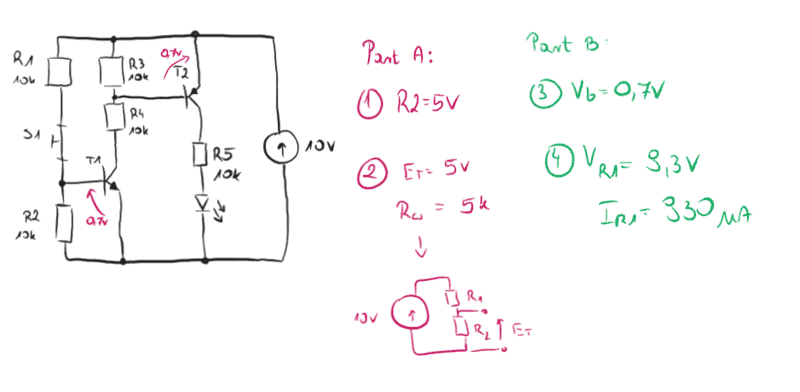 R1
10k
S1
R2
10k
R3
10k
R4
10k
T1
0,7V
0,7V
T2
R5
10k
10V
Part A:
① R2=5V
② ET= 5V
= 5k
10V
R1
R2
ET
Part B:
③ Vb=0,7V
④ VR1= 9,3V
IR1= 930 µA